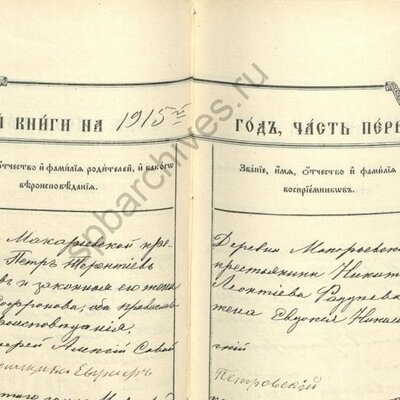 й книги на 1915й
годъ, часть перв
отчество и фамилія родителей, и какого
вѣроисповѣданія.
Званіе, имя, отчество и фамилія
воспріемниковъ.
Макарьевской кре
Петръ Терентіевъ
въ и законная его жена
офронова, оба правосл
роисповѣданія.
рей Алексій Совой
Деревни
крестьянинъ Никит
Леонтіева
жена Евдокія Никола
гній
Петровскій
spbarchives.ru